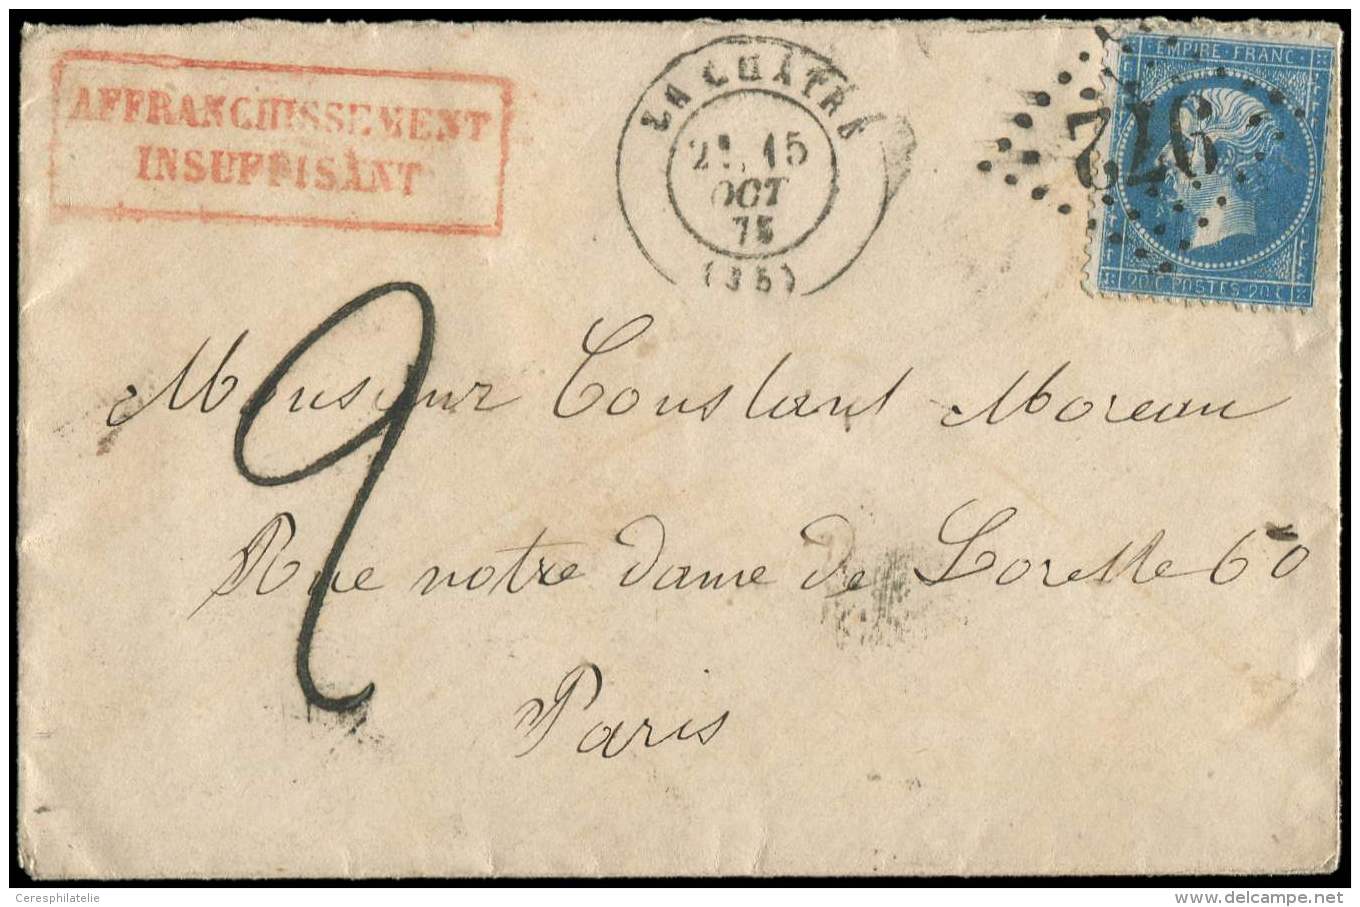 AFFRANCHISSEMENT
INSUFFISANT
LA CHÂTRE
OCT
75
(35)
EMPIRE FRANC
20 C POSTES 20 C
2
Monsieur Constant Moreau
Rue notre dame de Lorette 60
Paris
Ceresphilatelie
www.delcampe.net